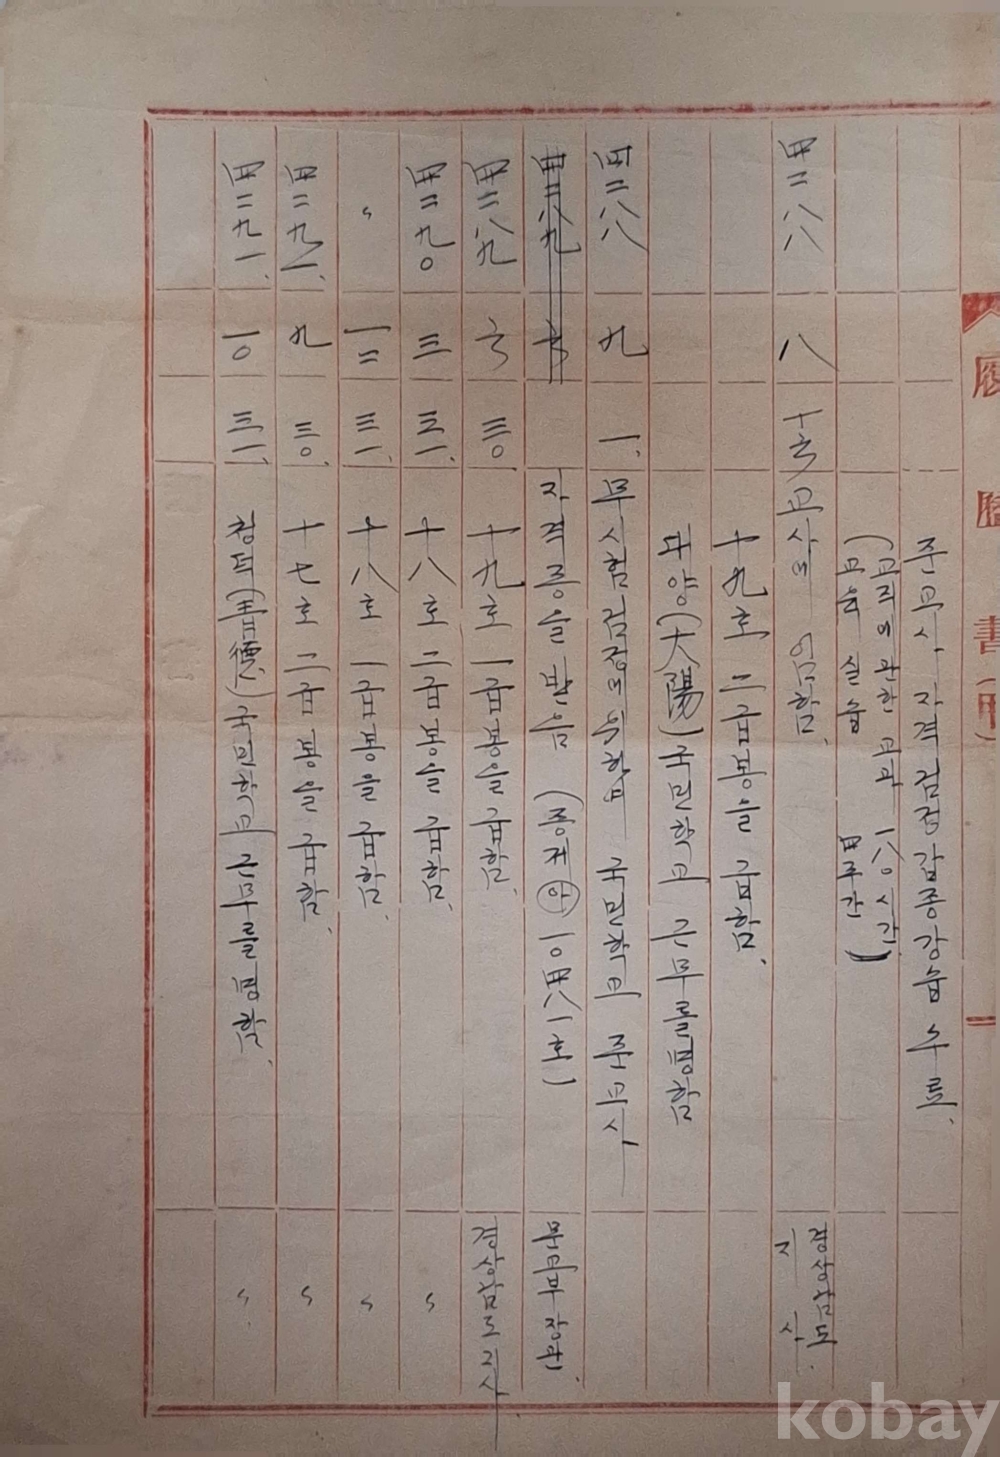 履歷書(甲)
준교사 자격검정 갑종강습 수료.
(교직에 관한 교과 一八〇시간
교육 실습 四주간)
四二八八 八 十六 교사에 임함. 경상남도 지사
十九호 二급봉을 급함.
대양(大陽)국민학교 근무를 명함
四二八八 九 一. 무시험검정에 의함 국민학교 준교사
四二八九 六 자격증을 받음 (증제㉵一〇四八一호) 문교부장관.
四二八九 六 三〇. 十九호 一급봉을 급함. 경상남도지사
四二九〇 三 三一. 十八호 二급봉을 급함. 〃
〃 一二 三一. 十八호 一급봉을 급함. 〃
四二九一. 九 三〇. 十七호 二급봉을 급함. 〃
四二九一. 一〇 三一. 청덕(靑德)국민학교 근무를 명함. 〃
kobay